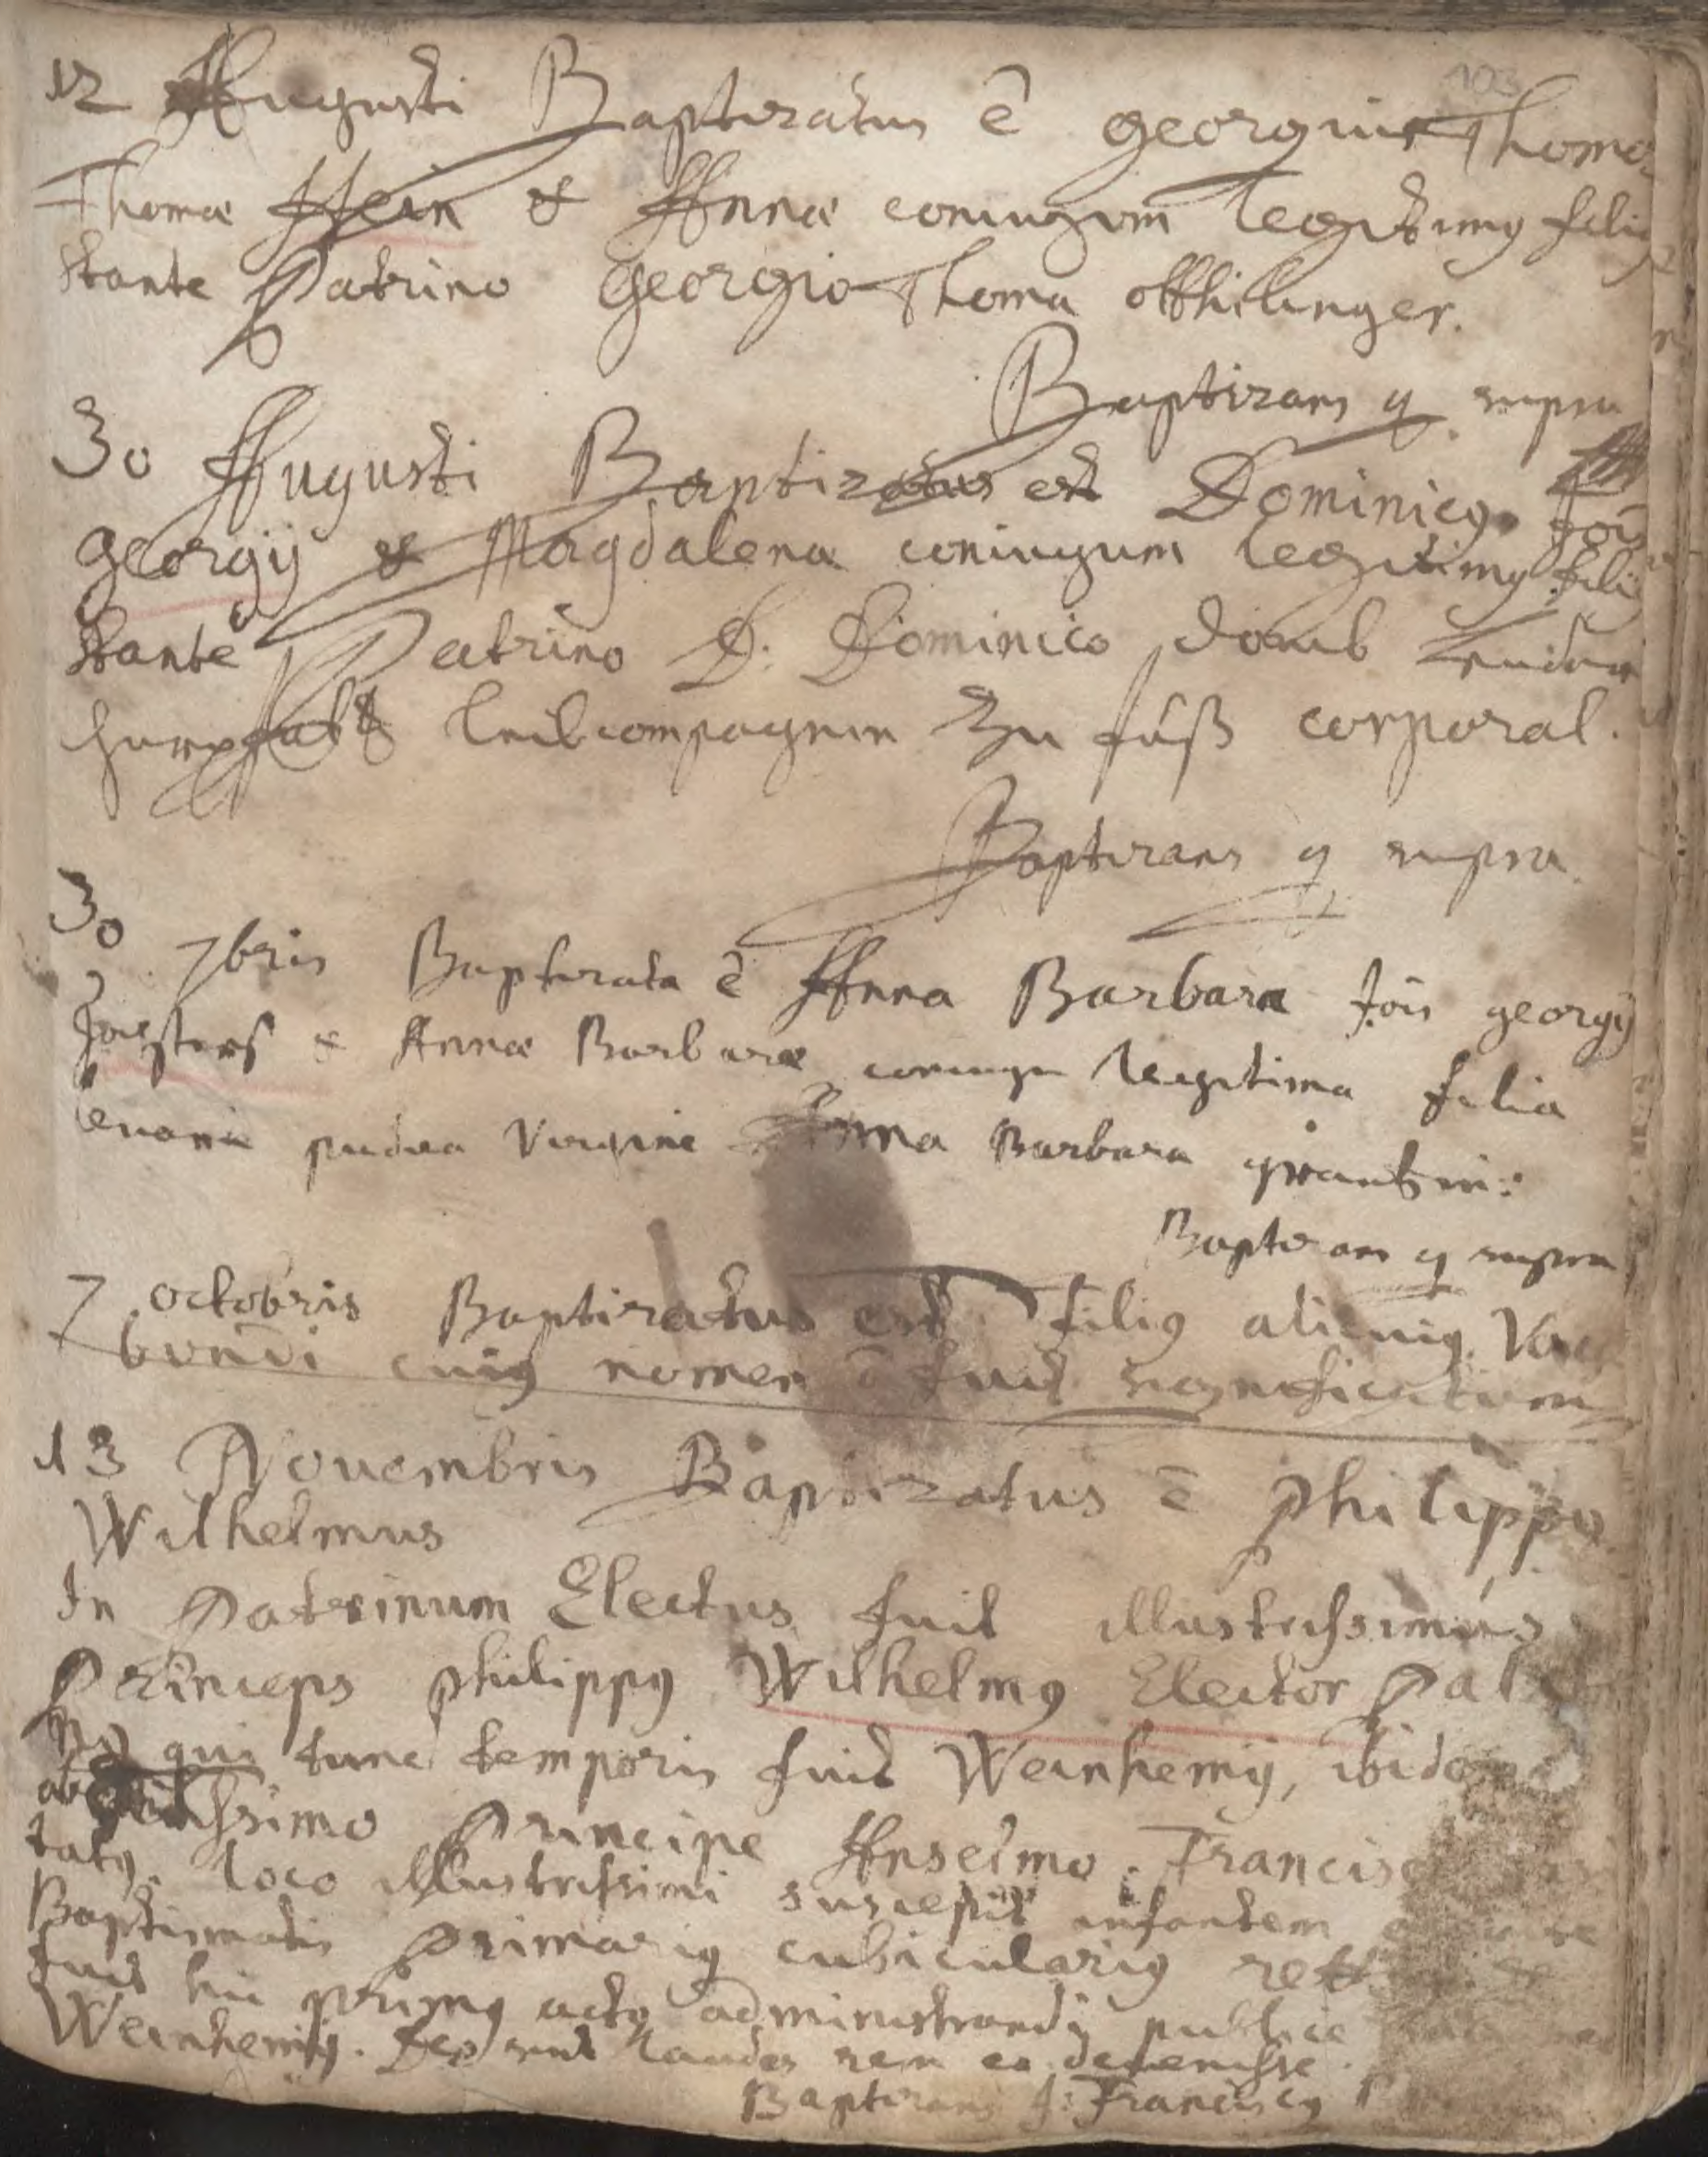 103
12 Augusti Baptizatus ē georgius Thomas
Thomæ Hein & Annæ coniugum legitimus filius
stante Patrino Georgio Thoma
Baptizans q supra
30 Augusti Baptizatus est Dominicus Jois
Georgij & Magdalenæ coniugum legitimus filius
stante Patrino D. Dominico
leibcompagnie zu fuß corporal.
Baptizans q supra
30 7bris Baptizata ē Anna Barbara Jois georgij
& Annæ Barbaræ coniugū legitima filia
levante pudica Virgine Anna Barbara
Baptizans q supra
7 octobris Baptizatus est filius alicuius Vaga
bundi cuius nomen ō fuit significatum
13 Nouembris Baptizatus ē Philippus
Wilhelmus
In Patrinum Electus fuit illustrissimus
Princeps Philippus Wilhelmus Elector Pala
nus qui tunc temporis fuit Weinhemij, ibidem
Principe Anselmo Francisco
tatus. loco illustrissimi suscepit infantem
Baptismatis Primarius cubicularius
fuit hic primus actus administrandi publice
Weinhemij. Deo sint laudes rem eo devenisse.
Baptizans J: Franciscus